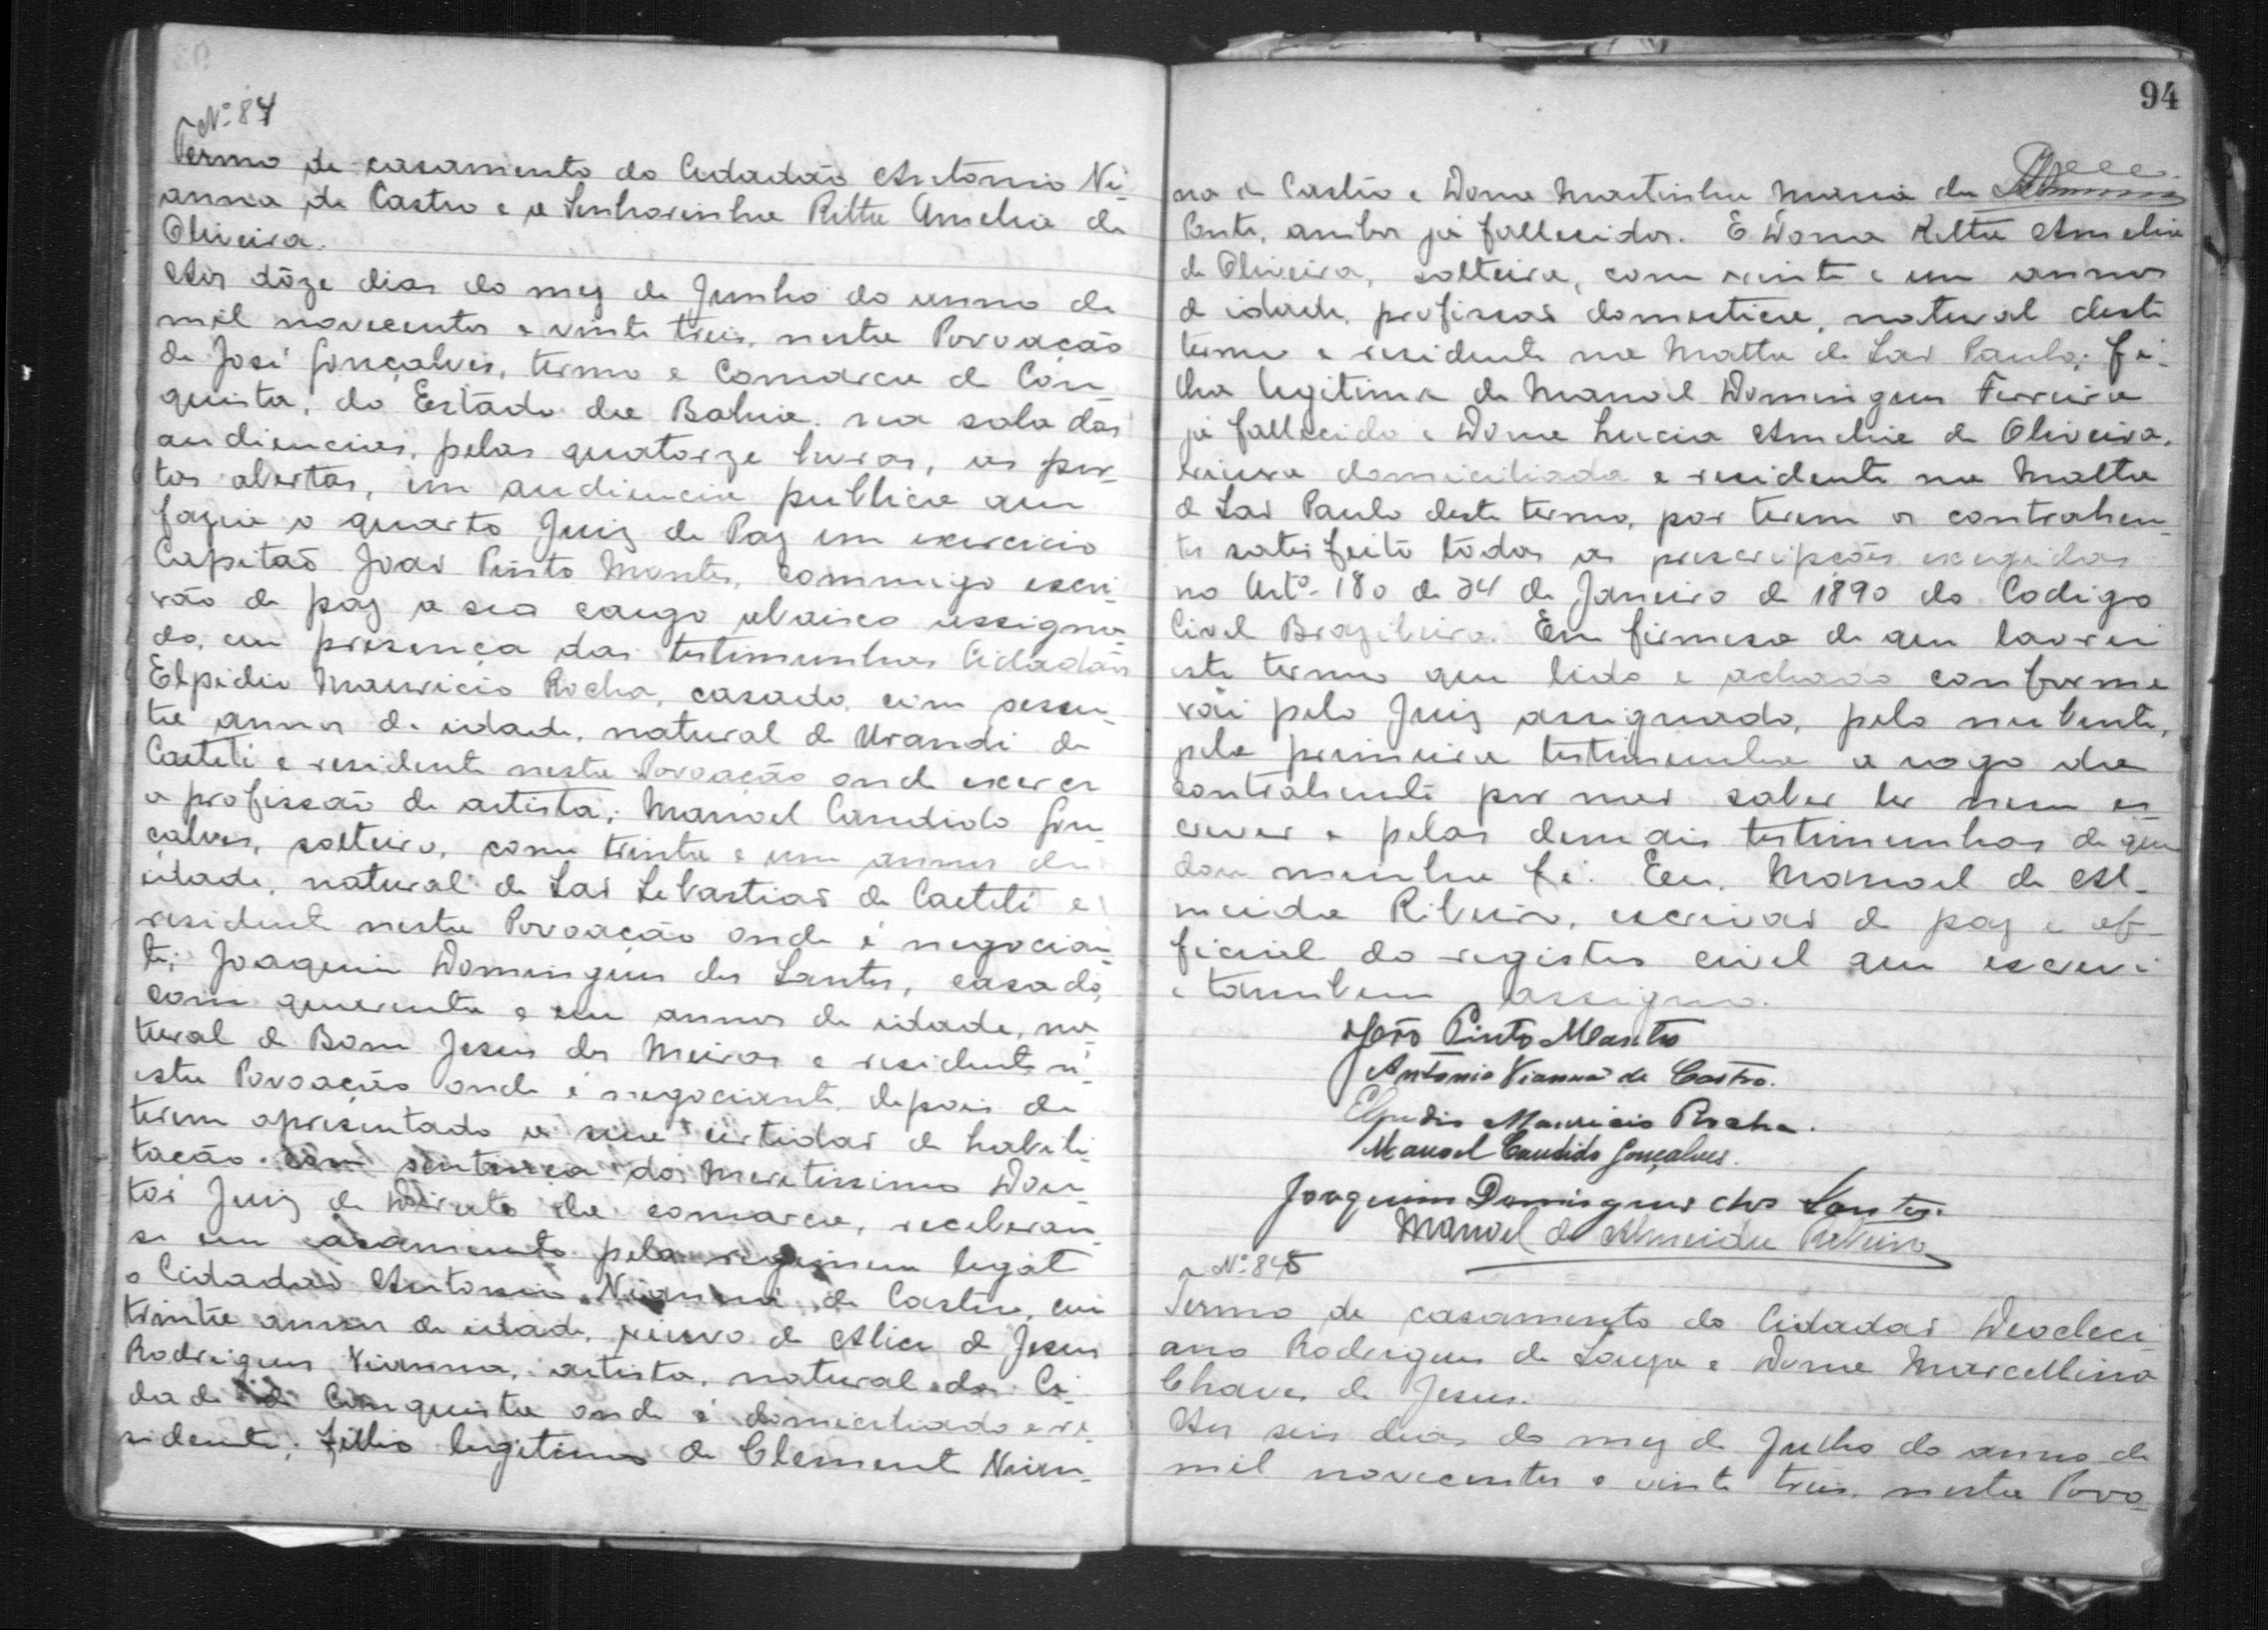 Nº 84
Termo de casamento do Cidadão Antonio Vi-
anna de Castro e a Senhorinha Ritta Amelia de
Oliveira.
Aos dôze dias do mez de Junho do anno de
mil novecentos e vinte treis, nesta Povoação
de José Gonçalves, termo e Comarca de Con-
quista, do Estado da Bahia, na sala das
audiencias, pelas quatorze horas, as por-
tas abertas, em audiencia publica que
fazia o quarto Juiz de Paz em exercicio
Capitão João Pinto Montes, commigo escri-
vão de paz a seo cargo abaixo assigna-
do, em presença das testimunhas Cidadãos
Elpidio Mauricio Rocha, casado, com sessen-
ta annos de idade, natural de Urandi de
Caeteté e residente nesta Povoação onde exerce
a profissão de artista; Manoel Candido Gon-
çalves, solteiro, com trinta e um annos de
idade, natural de São Sebastião de Caeteté e
residente nesta Povoação onde é negocian-
te; Joaquim Domingues dos Santos, casado,
com quarenta e um annos de idade, na-
tural de Bom Jesus dos Meiras e residente n'
esta Povoação onde é negociante, depois de
terem apresentado a sua certidão de habili-
tação com sentença do Meretissimo Dou-
tor Juiz de Direito da comarca, receberan-
se em casamento pelo regimem legal
o Cidadão Antonio Vianna de Castro, com
trinta annos de idade, viuvo de Alice de Jesus
Rodrigues Vianna, artista, natural da Ci-
dade de Conquista onde é domiciliado e re-
sidente; filho legitimo de Clemente Vian-
94
na de Castro e Dona Martinha Maria da
Conte, ambos já fallecidos. E Dona Ritta Amelia
de Oliveira, solteira, com vinte e um annos
de idade, profissão domestica, natural deste
termo e residente na Matta de São Paulo; fi-
lha legitima de Manoel Domingues Ferreira
já fallecido e Dona Lucia Amelia de Oliveira,
viuva domiciliada e residente na Matta
de São Paulo deste termo, por terem os contrahen-
tes satisfeito tôdas as prescripções exegidas
no Artº 180 de 24 de Janeiro de 1890 do Codigo
Civel Brazileiro. Em firmesa de que lavrei
este termo que lido e achado conforme
vai pelo Juiz assignado, pelo nubente,
pela primeira testimunha a rogo da
contrahente por não saber ler nem es-
crever e pelas demais testimunhas de que
dou minha fé. Eu, Manoel de Al-
meida Ribeiro, escrivão de paz e of-
ficial do registro civel que escrevi
e tambem assigno.
João Pinto Montes
Antonio Vianna de Castro.
Elpidio Mauricio Rocha.
Manoel Candido Gonçalves.
Joaquim Domingues dos Santos.
Manoel de Almeida Ribeiro
Nº 845
Termo de casamento do Cidadão Deocleci-
ano Rodrigues de Souza e Dona Marcellina
Chaves de Jesus.
Aos seis dias do mez de Julho do anno de
mil novecentos e vinte treis, nesta Povo-